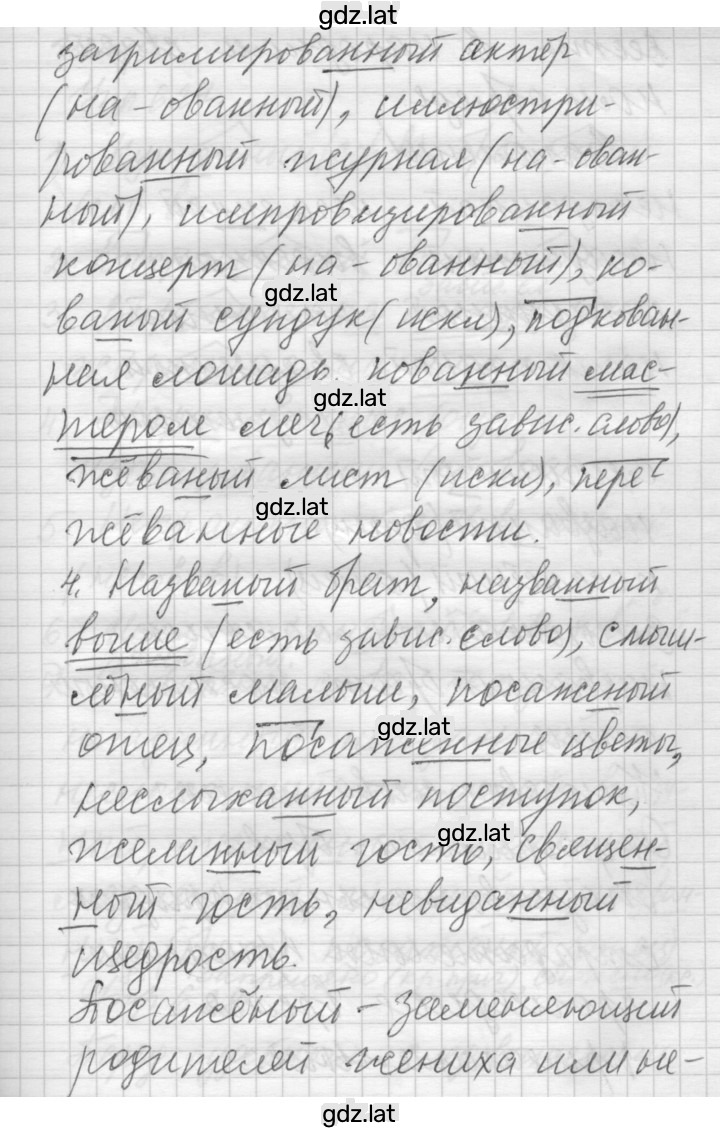 gdz.lat
загримированный актёр
(на-ованный), иллюстри-
рованный журнал (на-ован-
ный), импровизированный
концерт (на-ованный), ко-
gdz.lat
ваный сундук (искл), подкован-
ная лошадь. кованный мас-
gdz.lat
тером меч (есть завис. слово),
жёваный лист (искл), пере-
gdz.lat
жёванные новости.
4. Названый брат, названный
выше (есть завис. слово), смыш-
лёный малыш, посаженый
gdz.lat
отец, посаженные цветы,
неслыханный поступок,
gdz.lat
желанный гость, священ-
ный гость, невиданный
щедрость.
Посажёный - заменяющий
родителей жениха или не-
gdz.lat